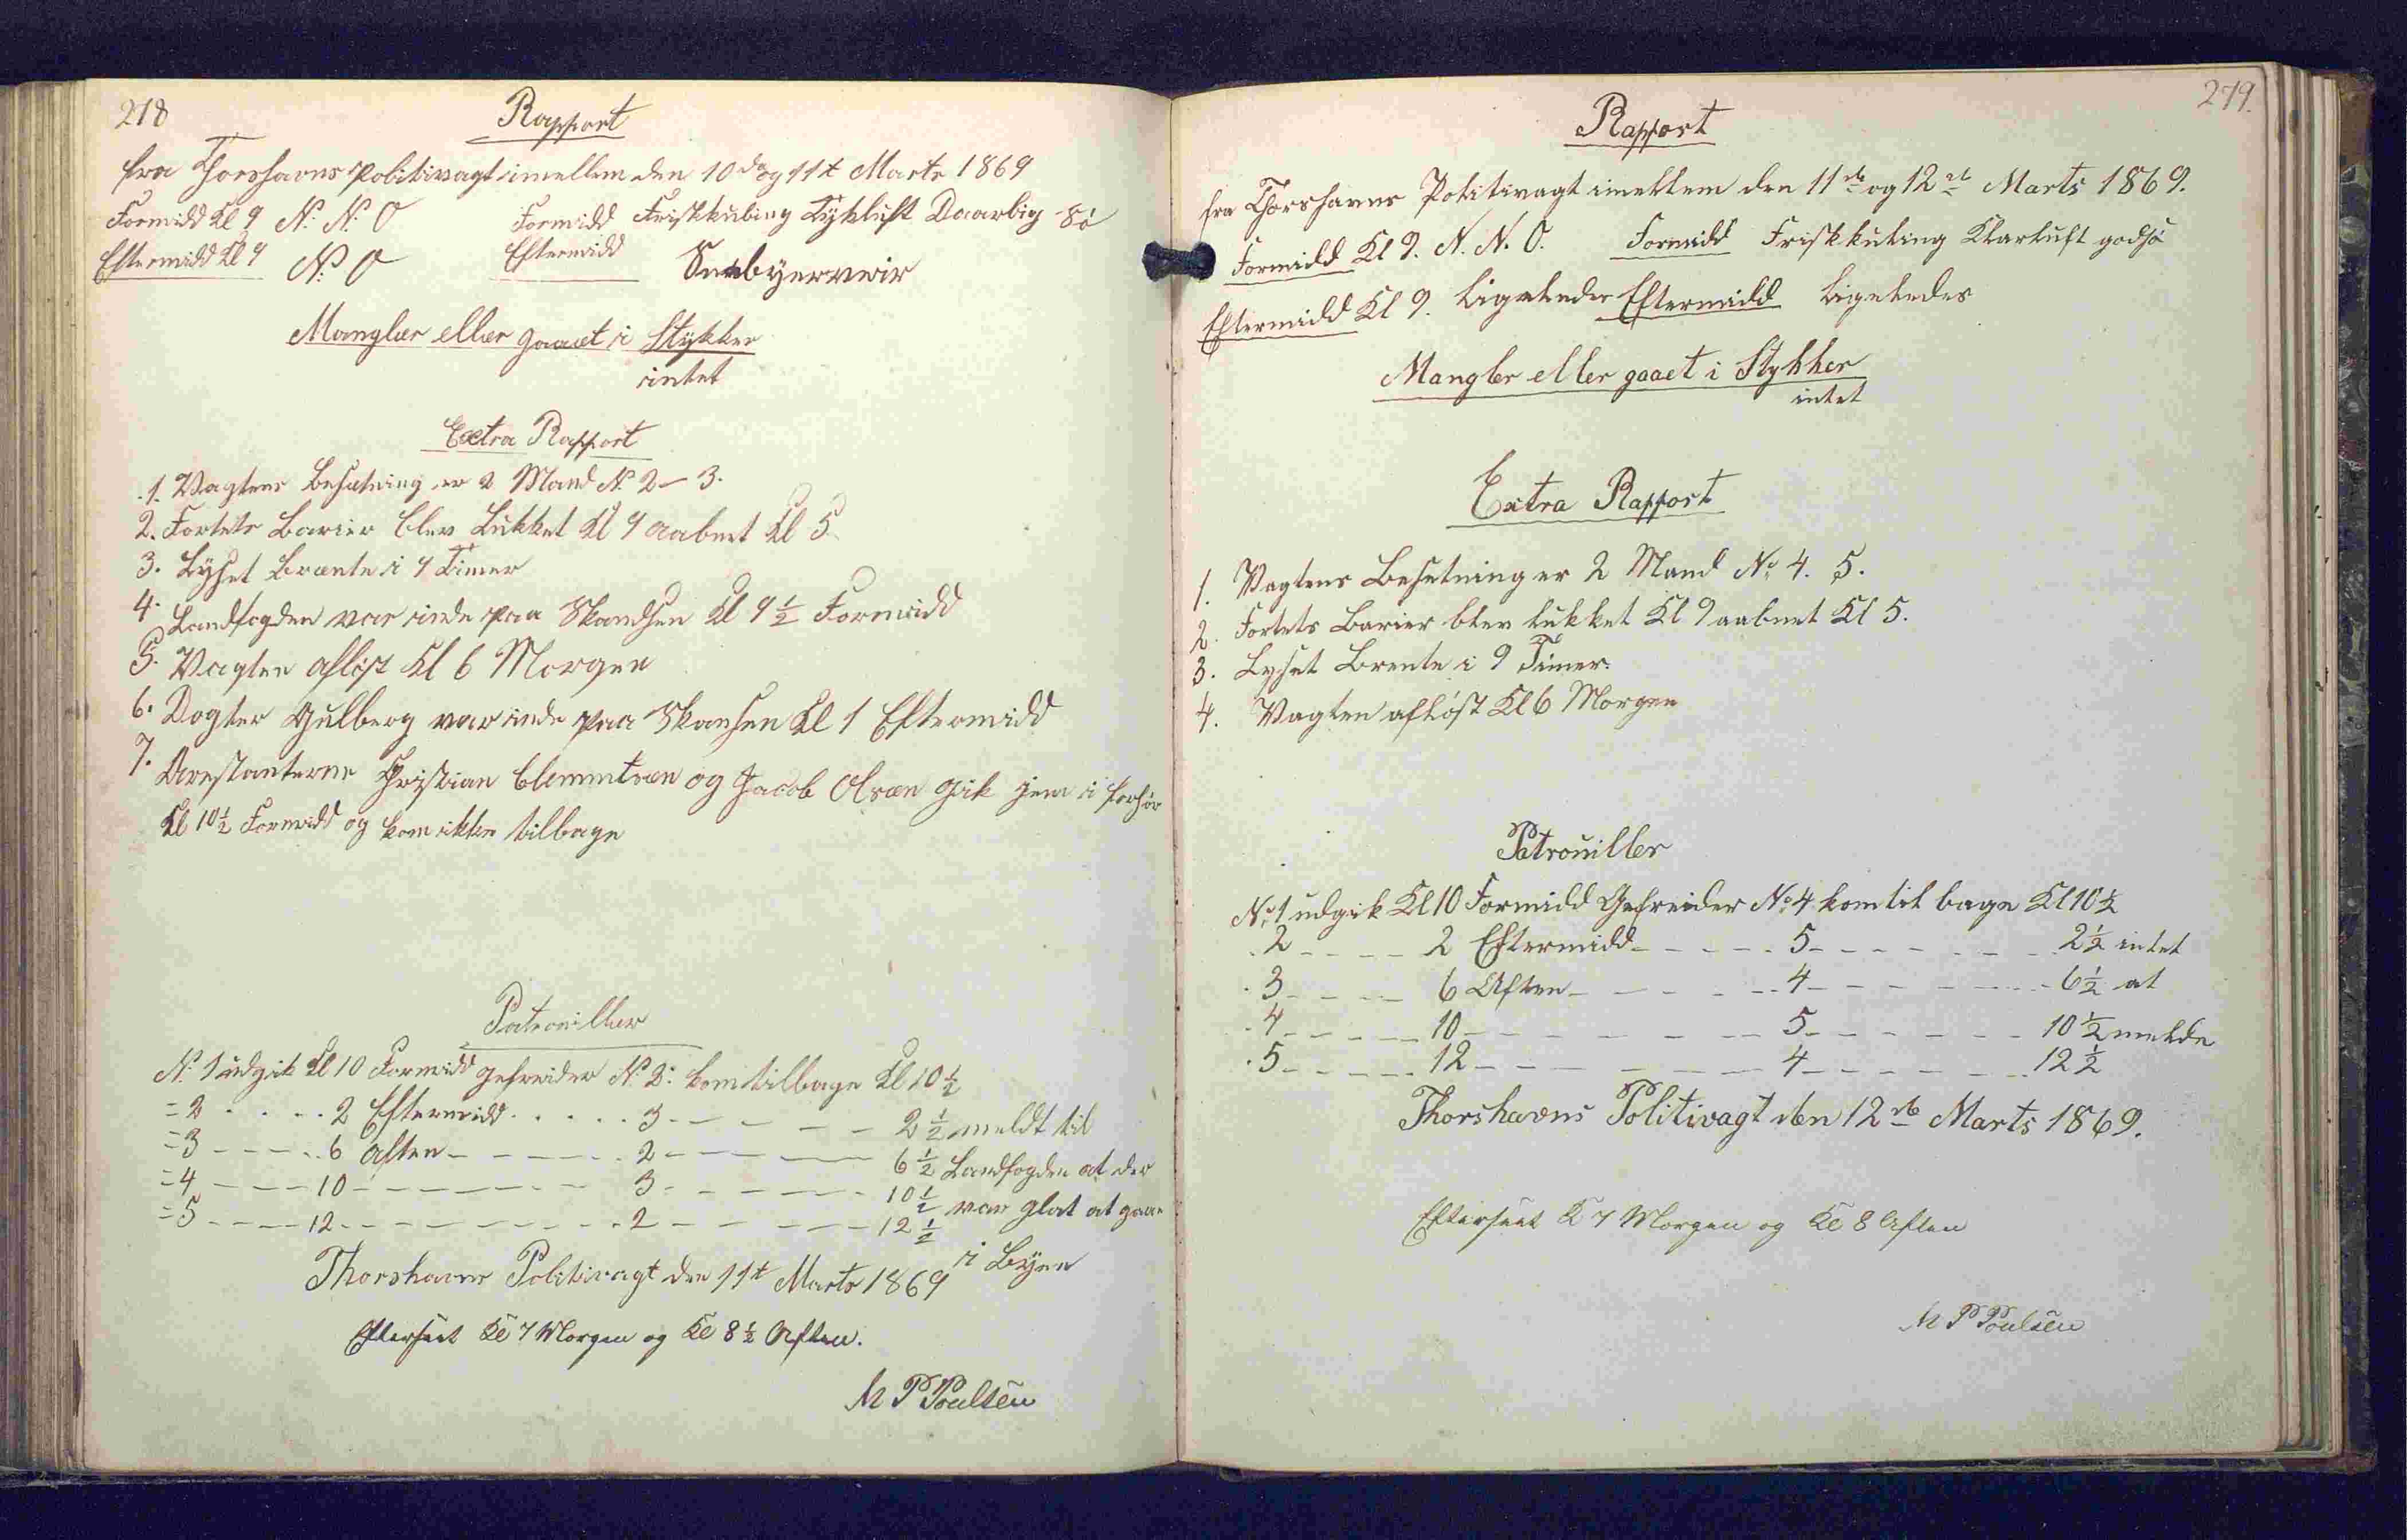 218
Rapport
fra Thorshavns Politivagt imellem den 10de og 11te Marts 1869
Formidd Kl 9 N: N: O Formidd Friskkuling Tykluft Daarlig Sö
Eftermidd Kl 9 N: O Eftermidd Sneebyerveir
Mangler eller gaaet i Stykker
intet
Extra Rapport
1. Vagtens Besetning er 2 Mand No 2 - 3.
2. Fortets Barier blev Lukket Kl 9 aabnet Kl 5.
3. Lyset Brænte i 9 Timer
4. Landfogden var inde paa Skandsen Kl 9½ Formidd
5. Vagten aflöst Kl 6 Morgen
6. Dogter Gulberg var inde paa Skansen Kl 1 Eftermidd
7. Arestanterne Christian Clemmtsen og Jacob Olsen gik hen i forhör
Kl 10½ Formidd og kom ikke tilbage
Patrouiller
No 1 udgik Kl 10 Formidd gefreider No 2: kom tilbage Kl 10½
=2 - - - 2 Eftermidd - - - - 3 - - - - 2½ meldt til
=3 - - - 6 Aften - - - - 2 - - - - 6½ Landfogden at der
=4 - - - 10 - - - - 3 - - - - 10½ var glat at gaae
=5 - - - 12 - - - - 2 - - - - 12½
i Byen
Thorshavns Politivagt den 11te Marts 1869
Efterseet Kl 7 Morgen og Kl 8½ Aften.
M P Poulsen
219.
Rapport
fra Thorshavns Politivagt imellem den 11te og 12te Marts 1869.
Formidd Kl 9. N. N. O. Formidd Friskkuling Klarluft godsö
Eftermidd Kl 9. Ligeledes Eftermidd Ligeledes
Mangler eller gaaet i Stykker
intet
Extra Rapport
1. Vagtens Besetning er 2 Mand No 4. 5.
2. Fortets Barier blev lukket Kl 9 aabnet Kl 5.
3. Lyset Brente i 9 Timer.
4. Vagten aflöst Kl 6 Morgen
Patrouiller
No 1 udgik Kl 10 Formidd Gefreider No 4 kom tilbage Kl 10½
.2 - - - 2 Eftermidd - - - - 5 - - - - 2½ intet
.3 - - - 6 Aften - - - - 4 - - - - 6½ at
.4 - - - 10 - - - - 5 - - - - 10½ melde
.5 - - - 12 - - - - 4 - - - - 12½
Thorshavns Politivagt den 12te Marts 1869.
Efterseet Kl 7 Morgen og Kl 8 Aften
M P Poulsen